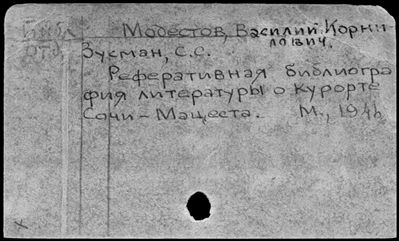 Библ. Модестов, Василий Корни
отд. лович.
Зусман, С.С.
Реферативная библиогра
фия литературы о курорте
Сочи - Мацеста. М., 1946
x